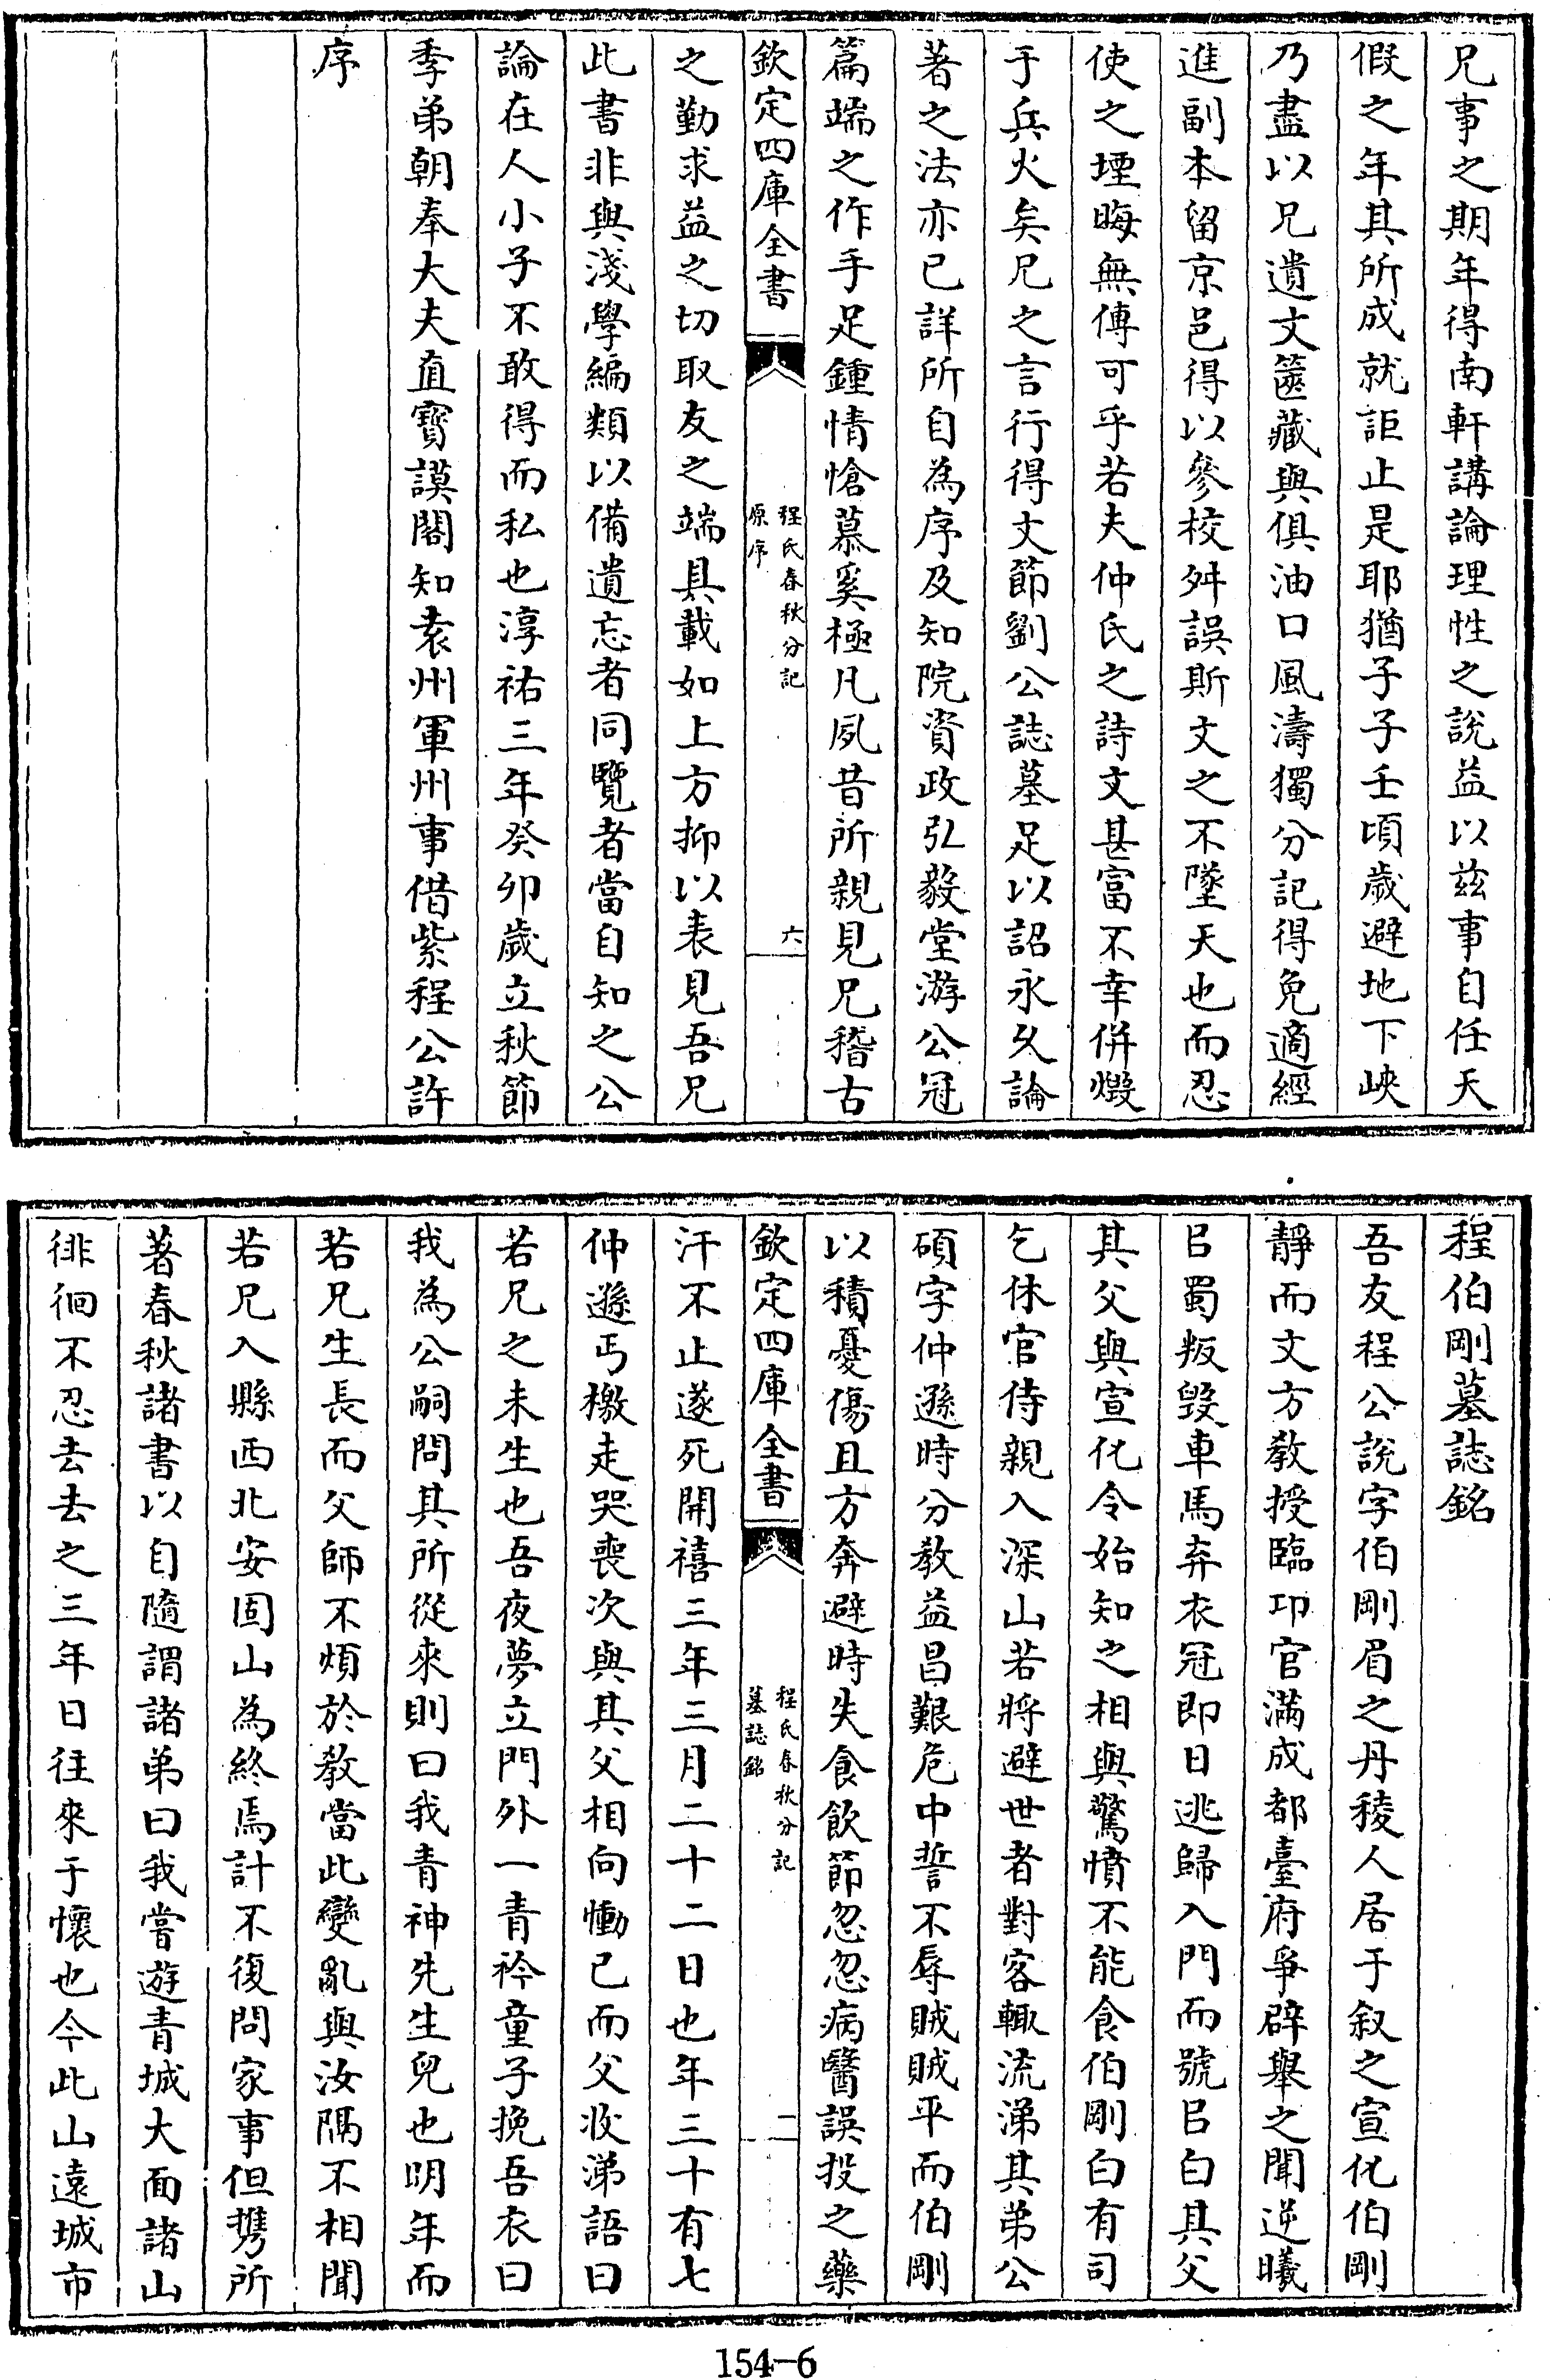 兄事之期年得南軒講論理性之說益以茲事自任天
假之年其所成就詎止是耶猶子子壬頃歲避地下峽
乃盡以兄遺文篋藏與俱油口風濤獨分記得免適經
進副本留京邑得以參校舛誤斯文之不墜天也而忍
使之堙晦無傳可乎若夫仲氏之詩文甚富不幸併燬
于兵火矣兄之言行得文節劉公誌墓足以詔永久論
著之法亦已詳所自為序及知院資政弘毅堂游公冠
篇端之作手足鍾情愴慕奚極凡夙昔所親見兄稽古
欽定四庫全書
程氏春秋分記
原序
六
之勤求益之切取友之端具載如上方抑以表見吾兄
此書非與淺學編類以備遺忘者同覽者當自知之公
論在人小子不敢得而私也淳祐三年癸卯歲立秋節
季弟朝奉大夫直寶謨閣知袁州軍州事借紫程公許
序
程伯剛墓誌銘
吾友程公說字伯剛眉之丹稜人居于叙之宣化伯剛
靜而文方教授臨邛官滿成都臺府爭辟舉之聞逆曦
㠯蜀叛毀車馬弃衣冠即日逃歸入門而號㠯白其父
其父與宣化令始知之相與驚憤不能食伯剛白有司
乞休官侍親入深山若將避世者對客輒流涕其弟公
碩字仲遜時分教益昌艱危中誓不辱賊賊平而伯剛
以積憂傷且方奔避時失食飲節忽忽病醫誤投之藥
欽定四庫全書
程氏春秋分記
墓誌銘
二
汗不止遂死開禧三年三月二十二日也年三十有七
仲遜丐檄走哭喪次與其父相向慟已而父收涕語曰
若兄之未生也吾夜夢立門外一青衿童子挽吾衣曰
我為公嗣問其所從來則曰我青神先生兒也明年而
若兄生長而父師不煩於教當此變亂與汝隔不相聞
若兄入縣西北安固山為終焉計不復問家事但攜所
著春秋諸書以自隨謂諸弟曰我嘗遊青城大面諸山
徘徊不忍去去之三年日往來于懷也今此山遠城市
154-6